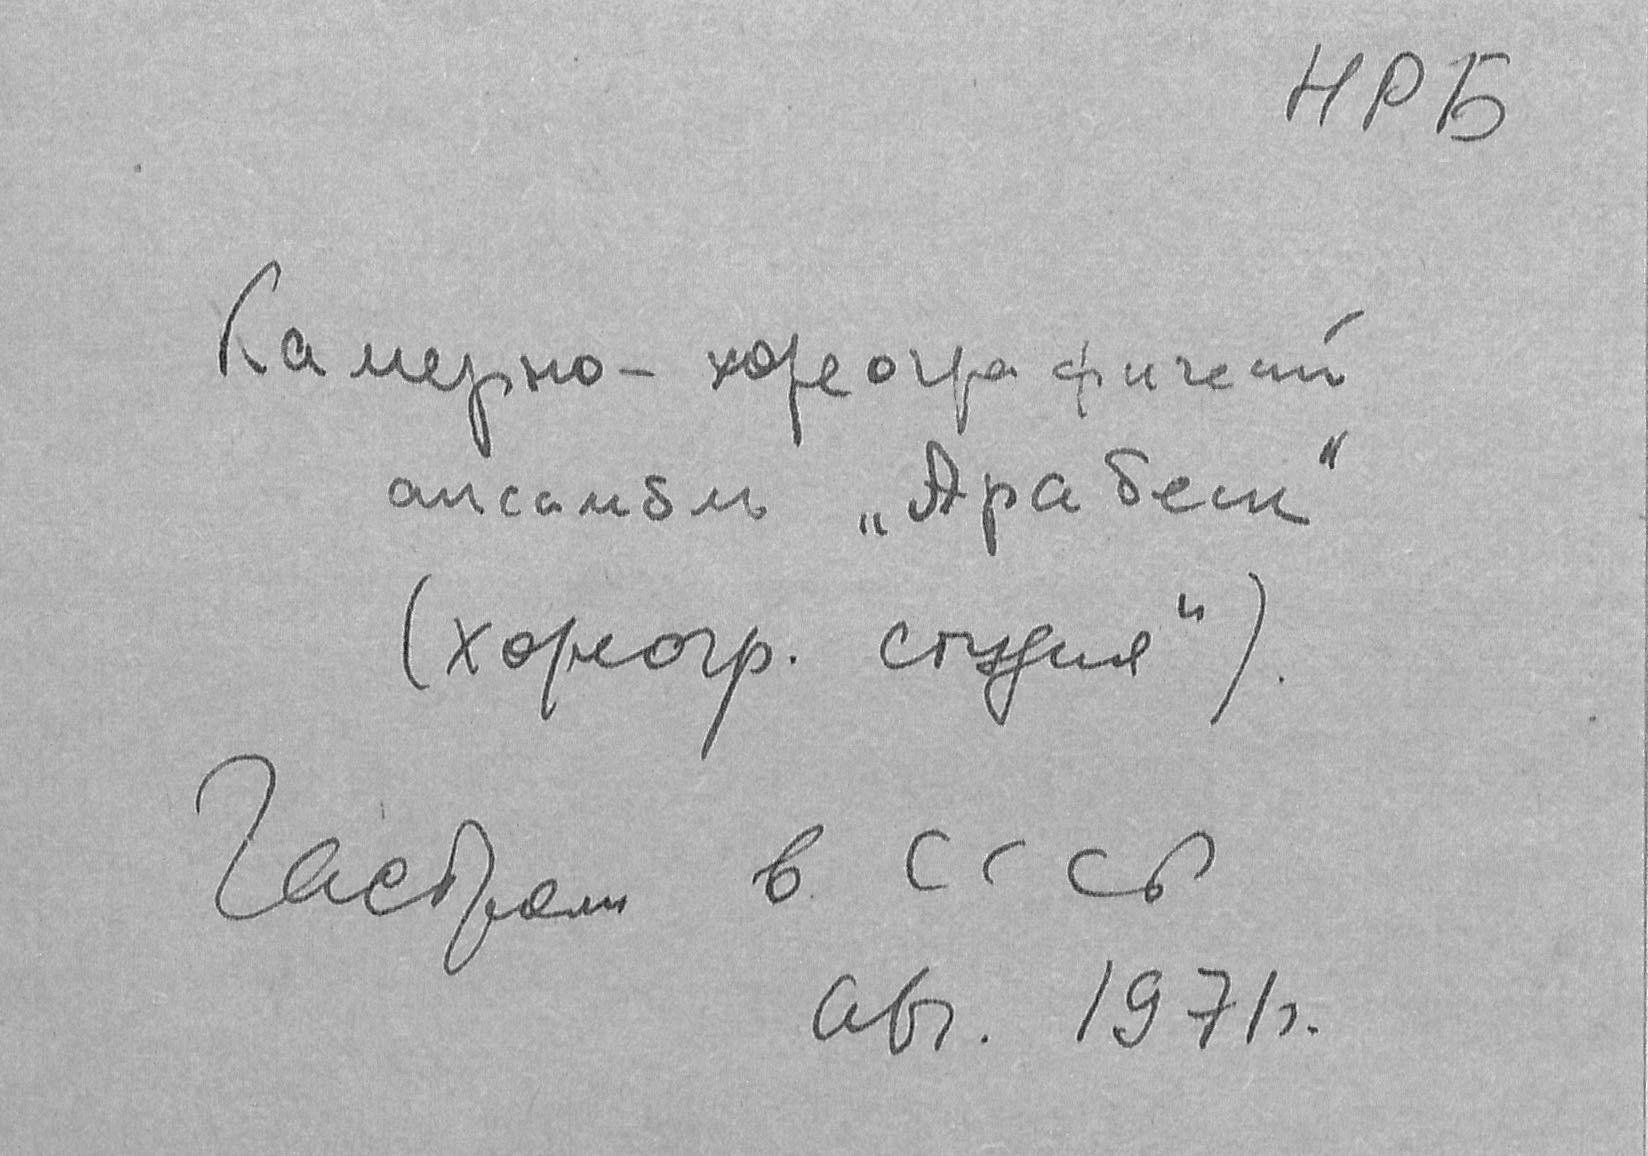 НРБ
Камерно-хореографический
ансамбль „Арабеск“
(хореогр. студия“).
Гастроли в СССР
авг. 1971г.